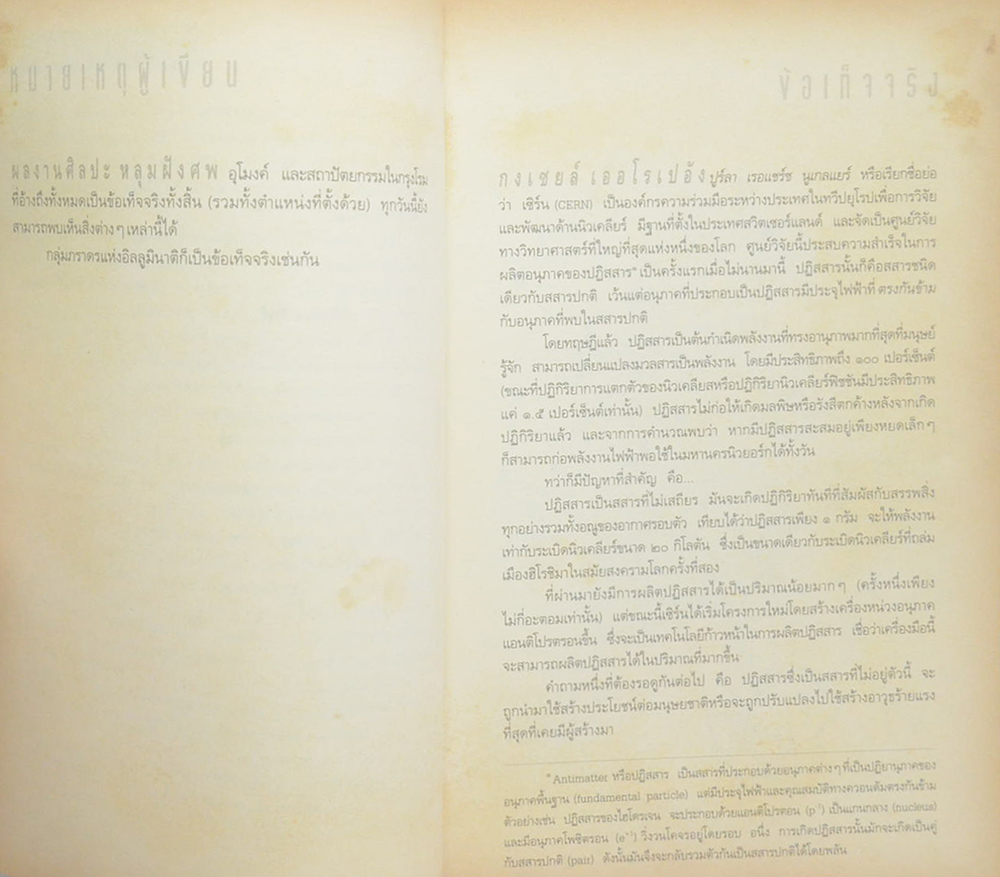 หมายเหตุผู้เขียน
ผลงานศิลปะ หลุมฝังศพ อุโมงค์ และสถาปัตยกรรมในกรุงโรม
ที่อ้างถึงทั้งหมดเป็นข้อเท็จจริงทั้งสิ้น (รวมทั้งตำแหน่งที่ตั้งด้วย) ทุกวันนี้ยัง
สามารถพบเห็นสิ่งต่างๆเหล่านี้ได้
กลุ่มภราดรแห่งอิลลูมินาติก็เป็นข้อเท็จจริงเช่นกัน
ข้อเท็จจริง
กงเซยล์ เออโรเปอ้ง ปูร์ลา เรอแชร์ช นูเกลแยร์ หรือเรียกชื่อย่อ
ว่า เซิร์น (CERN) เป็นองค์กรความร่วมมือระหว่างประเทศในทวีปยุโรปเพื่อการวิจัย
และพัฒนาด้านนิวเคลียร์ มีฐานที่ตั้งในประเทศสวิตเซอร์แลนด์ และจัดเป็นศูนย์วิจัย
ทางวิทยาศาสตร์ที่ใหญ่ที่สุดแห่งหนึ่งของโลก ศูนย์วิจัยนี้ประสบความสำเร็จในการ
ผลิตอนุภาคของปฏิสสาร* เป็นครั้งแรกเมื่อไม่นานมานี้ ปฏิสสารนั้นก็คือสสารชนิด
เดียวกับสสารปกติ เว้นแต่อนุภาคที่ประกอบเป็นปฏิสสารมีประจุไฟฟ้าที่ตรงกันข้าม
กับอนุภาคที่พบในสสารปกติ
โดยทฤษฎีแล้ว ปฏิสสารเป็นต้นกำเนิดพลังงานที่ทรงอานุภาพมากที่สุดที่มนุษย์
รู้จัก สามารถเปลี่ยนแปลงมวลสารเป็นพลังงาน โดยมีประสิทธิภาพถึง ๑๐๐ เปอร์เซ็นต์
(ขณะที่ปฏิกิริยาการแตกตัวของนิวเคลียสหรือปฏิกิริยานิวเคลียร์ฟิชชันมีประสิทธิภาพ
แค่ ๑.๕ เปอร์เซ็นต์เท่านั้น) ปฏิสสารไม่ก่อให้เกิดมลพิษหรือรังสีตกค้างหลังจากเกิด
ปฏิกิริยาแล้ว และจากการคำนวณพบว่า หากมีปฏิสสารสะสมอยู่เพียงหยดเล็กๆ
ก็สามารถก่อพลังงานไฟฟ้าพอใช้ในมหานครนิวยอร์กได้ทั้งวัน
ทว่าก็มีปัญหาที่สำคัญ คือ...
ปฏิสสารเป็นสสารที่ไม่เสถียร มันจะเกิดปฏิกิริยาทันทีที่สัมผัสกับสรรพสิ่ง
ทุกอย่างรวมทั้งอณูของอากาศรอบตัว เทียบได้ว่าปฏิสสารเพียง ๑ กรัม จะให้พลังงาน
เท่ากับระเบิดนิวเคลียร์ขนาด ๒๐ กิโลตัน ซึ่งเป็นขนาดเดียวกับระเบิดนิวเคลียร์ที่ถล่ม
เมืองฮิโรชิมาในสมัยสงครามโลกครั้งที่สอง
ที่ผ่านมายังมีการผลิตปฏิสสารได้เป็นปริมาณน้อยมากๆ (ครั้งหนึ่งเพียง
ไม่กี่อะตอมเท่านั้น) แต่ขณะนี้เซิร์นได้เริ่มโครงการใหม่โดยสร้างเครื่องหน่วงอนุภาค
แอนติโปรตรอนขึ้น ซึ่งจะเป็นเทคโนโลยีก้าวหน้าในการผลิตปฏิสสาร เชื่อว่าเครื่องมือนี้
จะสามารถผลิตปฏิสสารได้ในปริมาณที่มากขึ้น
คำถามหนึ่งที่ต้องรอดูกันต่อไป คือ ปฏิสสารซึ่งเป็นสสารที่ไม่อยู่ตัวนี้ จะ
ถูกนำมาใช้สร้างประโยชน์ต่อมนุษยชาติหรือจะถูกปรับแปลงไปใช้สร้างอาวุธร้ายแรง
ที่สุดที่เคยมีผู้สร้างมา
*Antimatter หรือปฏิสสาร เป็นสสารที่ประกอบด้วยอนุภาคต่างๆที่เป็นปฏิยานุภาคของ
อนุภาคพื้นฐาน (fundamental particle) แต่มีประจุไฟฟ้าและคุณสมบัติทางควอนตัมตรงกันข้าม
ตัวอย่างเช่น ปฏิสสารของไฮโดรเจน จะประกอบด้วยแอนติโปรตอน (p⁻¹) เป็นแกนกลาง (nucleus)
และมีอนุภาคโพซิตรอน (e⁺¹) วิ่งวนโคจรอยู่โดยรอบ อนึ่ง การเกิดปฏิสสารนั้นมักจะเกิดเป็นคู่
กับสสารปกติ (pair) ดังนั้นมันจึงจะกลับรวมตัวกันเป็นสสารปกติได้โดยพลัน